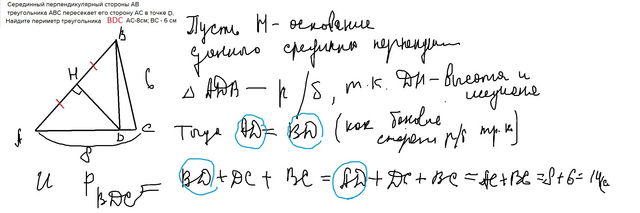 Серединный перпендикулярный стороны АВ
треугольника АВС пересекает его сторону АС в точке D.
Найдите периметр треугольника BDC AC-8см; BC - 6 см
Пусть H - основание
данного средин. перпендик.
B
H
6
A
D
C
8
△ ADB — р/б, т.к. DH - высота и
медиана
Тогда AD = BD (как боковые
стороны р/б тр.к)
И P BDC = BD + DC + BC = AD + DC + BC = AC + BC = 8 + 6 = 14